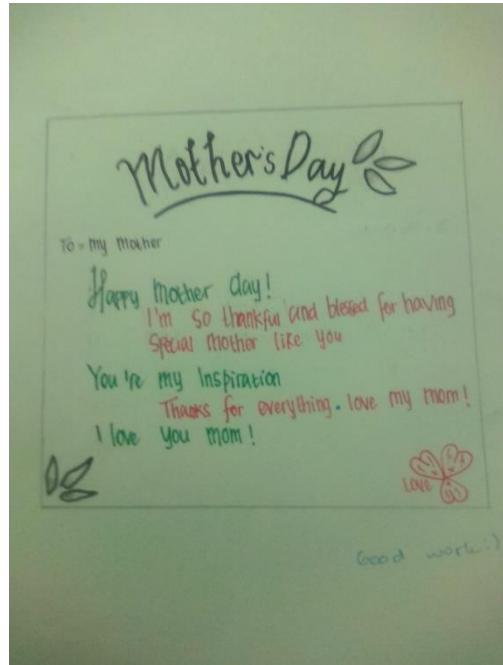 Mother's Day
To = my Mother
Happy mother day!
I'm so thankful and blessed for having
special mother like you
You're my Inspiration
Thanks for everything. love my mom!
I love you mom!
Love
Good work :)